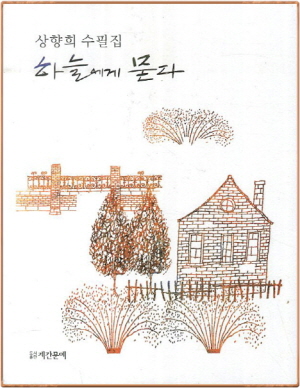 상향희 수필집
하늘에게 묻다
계간문예